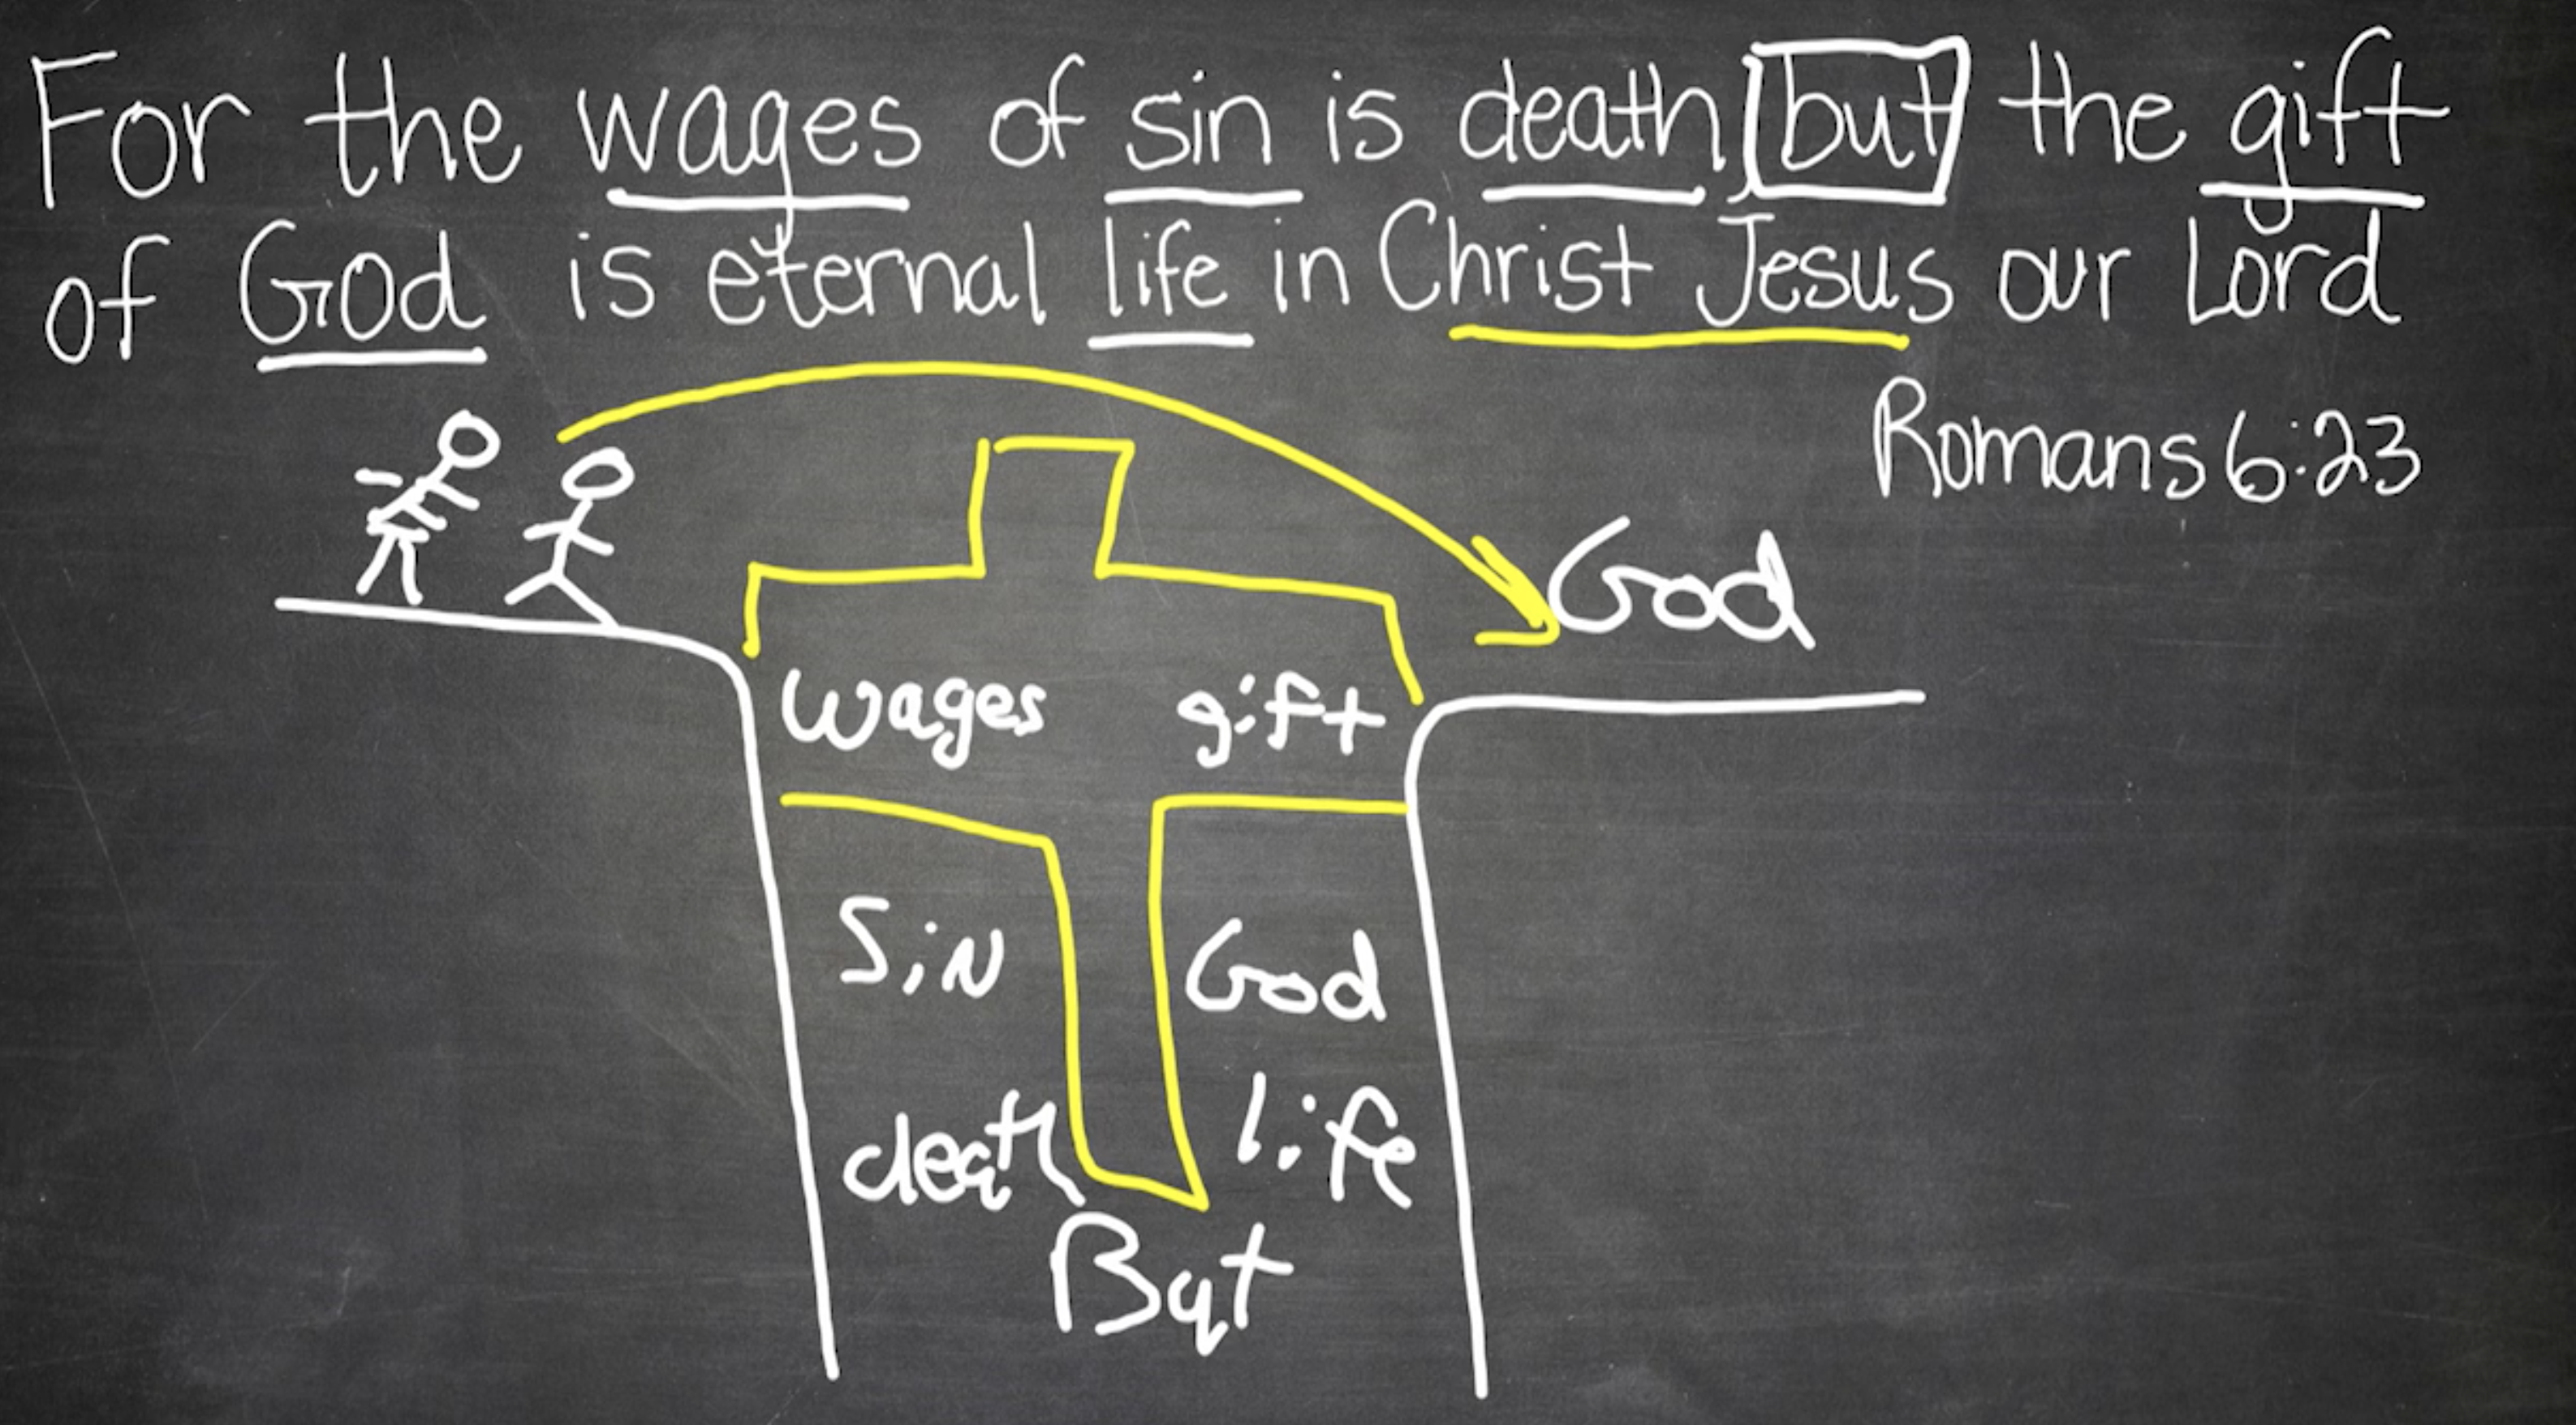 For the wages of sin is death, but the gift
of God is eternal life in Christ Jesus our Lord
Romans 6:23
God
wages gift
Sin God
death life
But